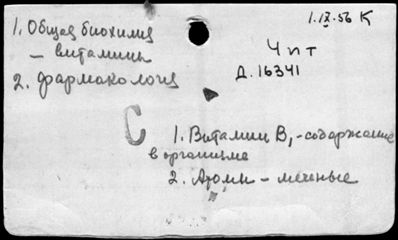 1.IX.56 К
1. Общая биохимия
– витамины
2. фармакология
Чит
Д.16341
С
1. Витамин B₁ – содержание
в организме
2. Атомы – меченые